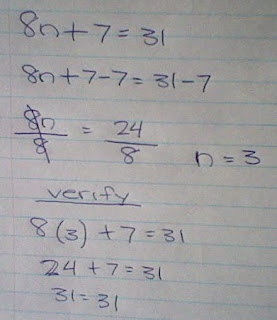 8n+7=31
8n+7-7=31-7
8n/8 = 24/8 n=3
verify
8(3)+7=31
24+7=31
31=31